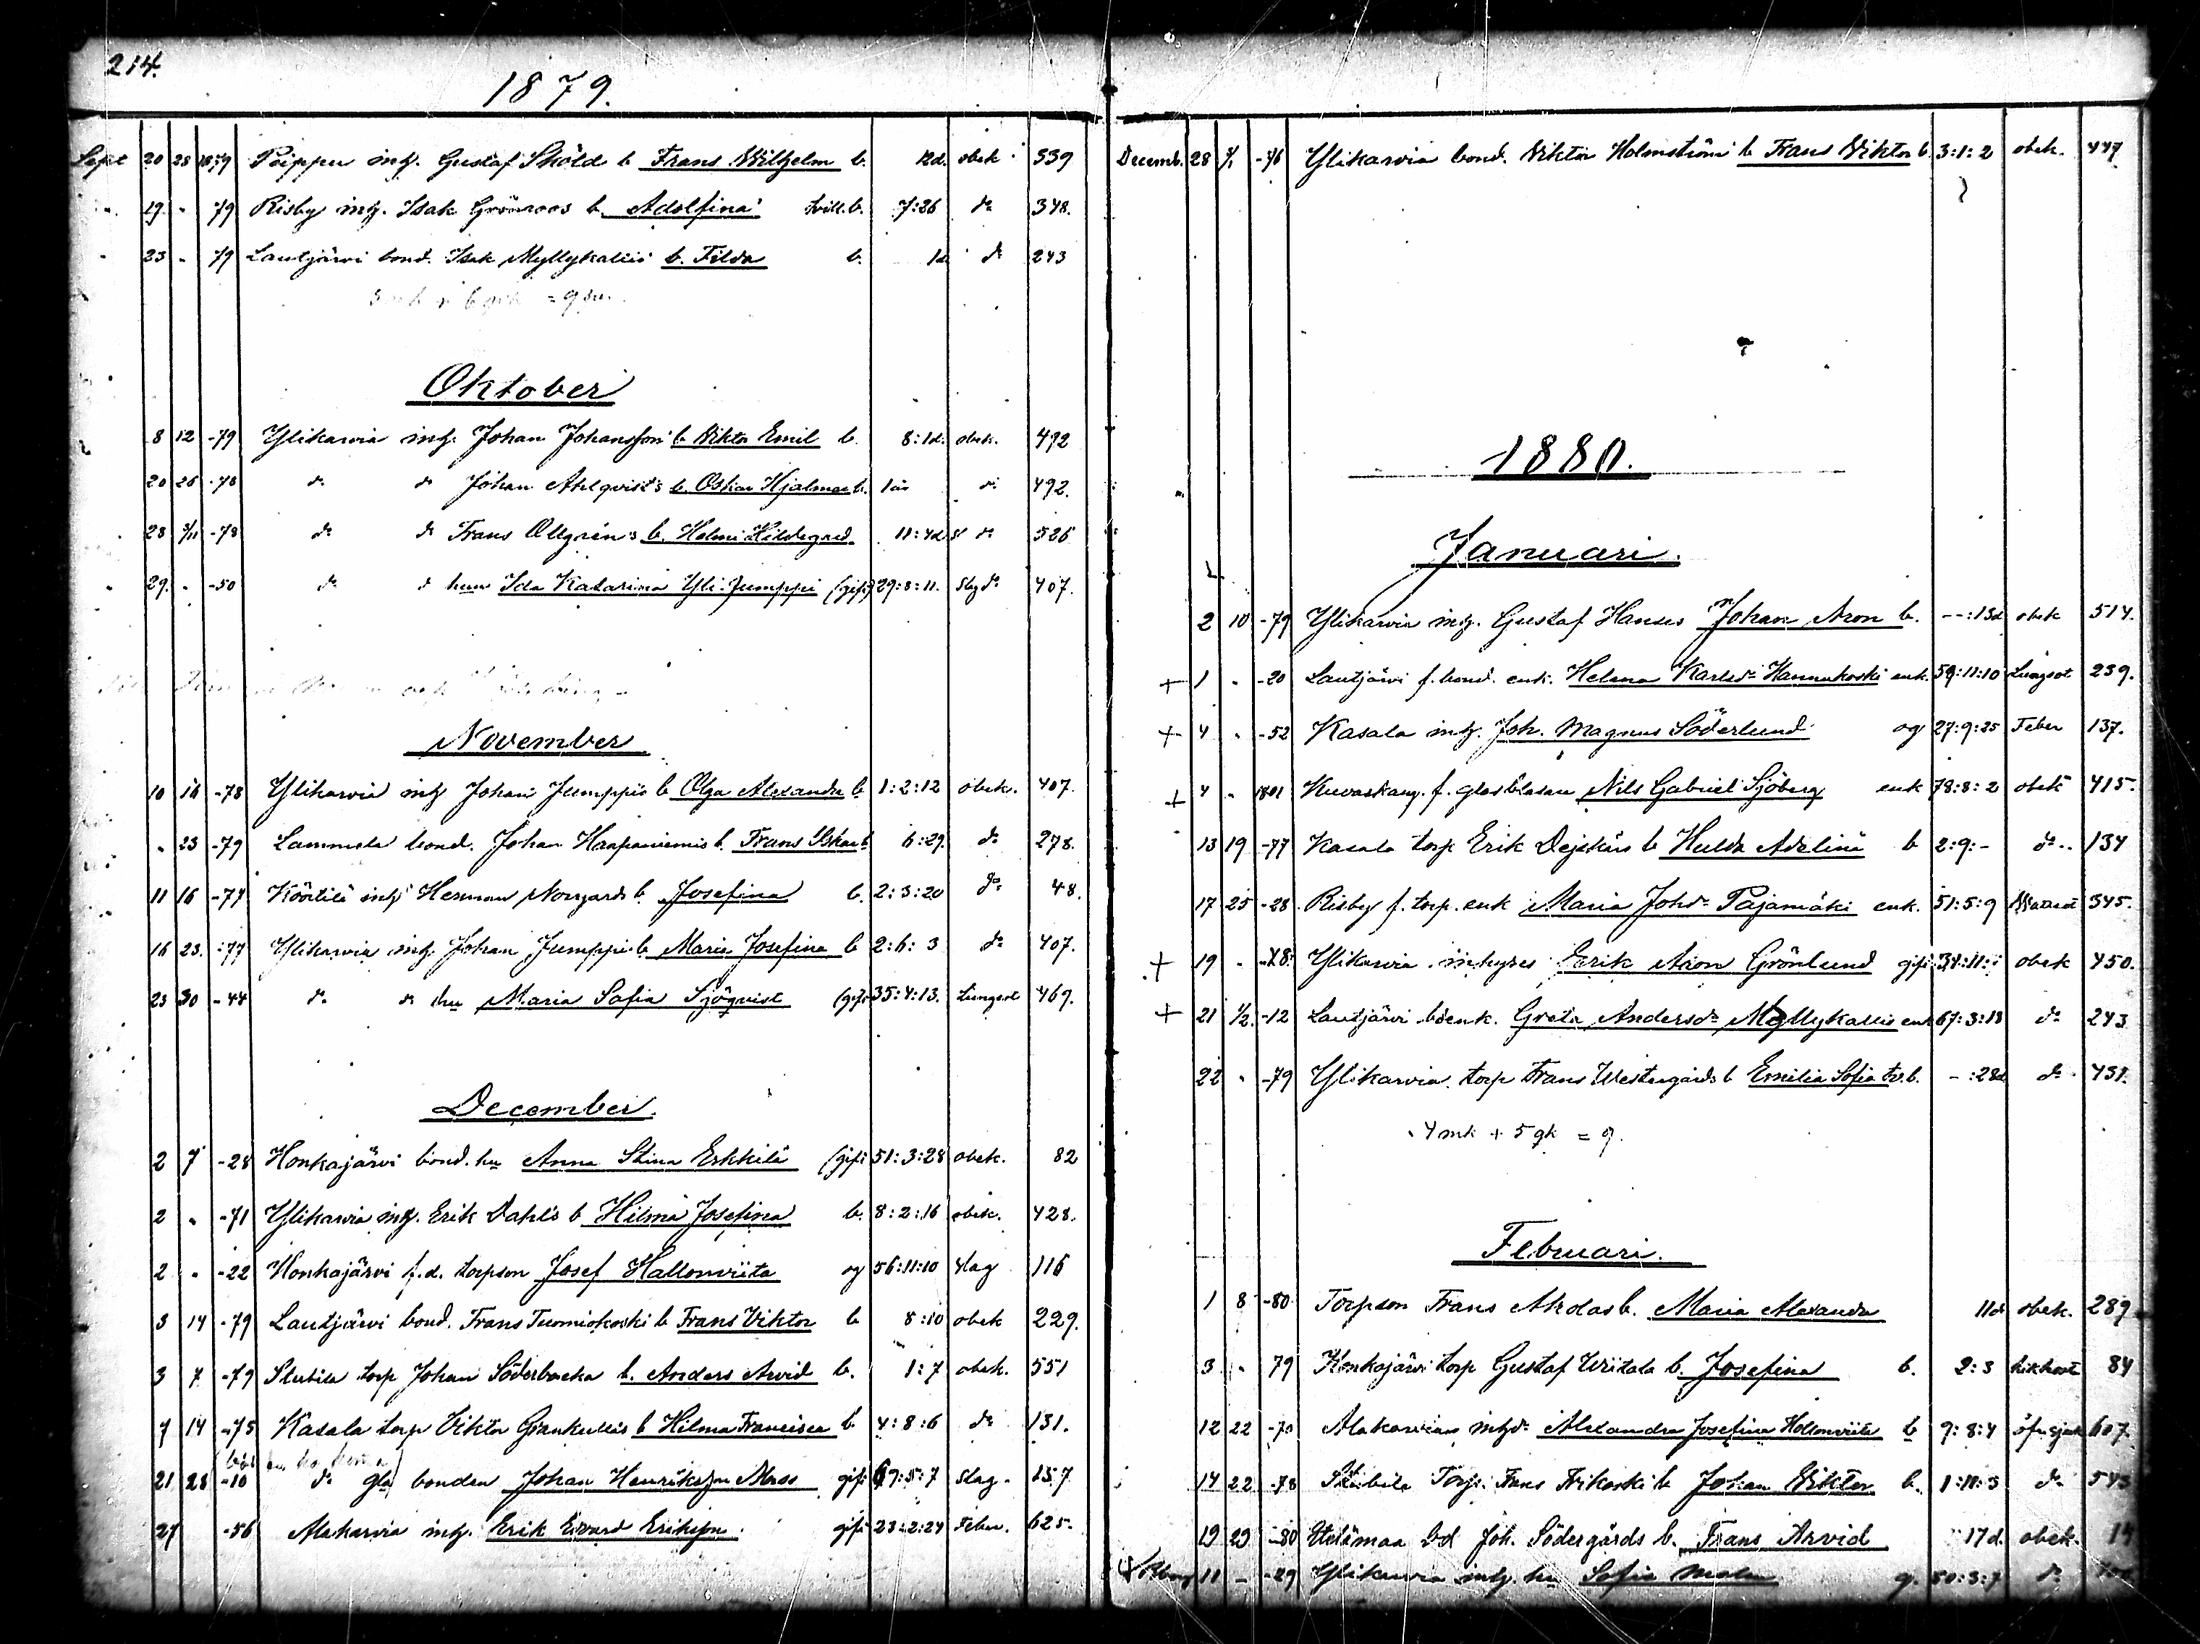 214.
1879.
Sept 20 28 1879 Poippu inhy. Gustaf Sköld b. Frans Wilhelm b. 12d. obek. 539
" 19 " 79 Risby inhy. Isak Grönroos b. Adolfina tvill. b. 7:26 do 348.
" 23 " 79 Lautjärvi bond. Isak Myllykallios b. Filda b. 1d do 243
Oktober
8 12 -79 Ylikarvia inhy. Johan Johansson b. Viktor Emil b. 8:1d. obek. 492
20 26 -78 do do Johan Ahlqvist's b. Oskar Hjalmar b. 1 år do 492.
28 3/11 -78 do do Frans Ollgrén's b. Helmi Hildegard. 11:4d do 526
29. " -50 do do hun Ida Katarina Yli-Jumppi (gift) 29:8:11. slag do 407.
November
10 16 -78 Ylikarvia inhy Johan Jumppis b. Olga Alexandra b. 1:2:12 obek. 407.
" 23 -79 Lammela bond. Johan Haapaniemis b. Frans Oskar b. 6:29. do 278.
11 16 -77 Köörtilä inhy Herman Norrgards b. Josefina b. 2:3:20 do 48.
16 23. -77 Ylikarvia inhy. Johan Jumppis b. Maria Josefina b 2:6:3 do 407.
23 30 -44 do do hu Maria Sofia Sjöqvist (gift 35:4:13. Lungsot 469.
December.
2 7 -28 Honkajärvi bond. hu Anna Stina Erkkilä (gift 51:3:28 obek. 82
2 " -71 Ylikarvia inhy. Erik Dahls b Hilma Josefina b. 8:2:16 obek. 428.
2 " -22 Honkajärvi f.d. torpson Josef Hallonviita og 56:11:10 slag 116
3 14 -79 Lautjärvi bond. Frans Tuomiokoski b Frans Viktor b 8:10 obek 229.
3 7 -79 Stubila torp Johan Söderbacka b. Anders Arvid b. 1:7 obek. 551
7 14 -75 Kasala torp Viktor Grankullas b Hilma Francisca b 4:8:6 do 131.
21 28 -10 do gla bonden Johan Henriksson Mass gift 69:5:7 slag. 157
27 -56 Alakarvia inhy. Erik Edvard Eriksson gift 23:2:24 Feber. 625.
Decemb. 28 4/1 -76 Ylikarvia bond. Viktor Holmströms b Frans Viktor b. 3:1:2 obek. 447
1880.
Januari.
2 10 -79 Ylikarvia inhy. Gustaf Hanses Johan Aron b. --:13d obek 514.
+ 1 " -20 Lautjärvi f. bond. enk. Helena Karlsdr Hannukoski enk. 59:11:10 Lungsot 239.
+ 4 " -52 Kasala inhy. Joh. Magnus Söderlund og 27:9:25 Feber 137.
+ 4 " 1801 Kuvaskang. f. glasblasare Nils Gabriel Sjöberg enk 78:8:2 obek 415.
13 19 -77 Kasala torp Erik Dejskärs b Hulda Adelina b 2:9:- do. 134
17 25 -28 Risby f. torp. enk Maria Johdr Pajamäki enk. 51:5:9 345.
+ 19 " -48. Ylikarvia inhyses Eerik Aron Grönlund gift 31:11:- obek 450.
+ 21 1/2. -12 Lautjärvi bdenk. Greta Andersdr Myllykallio enk 67:3:18 do 243
22 " -79 Ylikarvia torp Frans Westergårds b Emilia Sofia tv. b. -:28d do 431.
4 mk + 5 gk = 9.
Februari.
1 8 -80 Torpson Frans Aholas b. Maria Alexandra 11d obek. 289
3 " 79 Honkajärvi torp Gustaf Wiitala b. Josefina b. 2:3 kikhosta 84
12 22 -70 Alakarvian inhydr Alexandra Josefina Hollonviita b 9:8:4 607.
14 22 -78 Stubila Torp. Frans b Johan Viktor b. 1:11:3 do 543
19 29 -80 Uotimaa bd Joh. Södergårds b. Frans Arvid 17d. obek. 14
+ 11 - -29 Ylikarvia inhy. hu Sofia g. 50:3:7 do